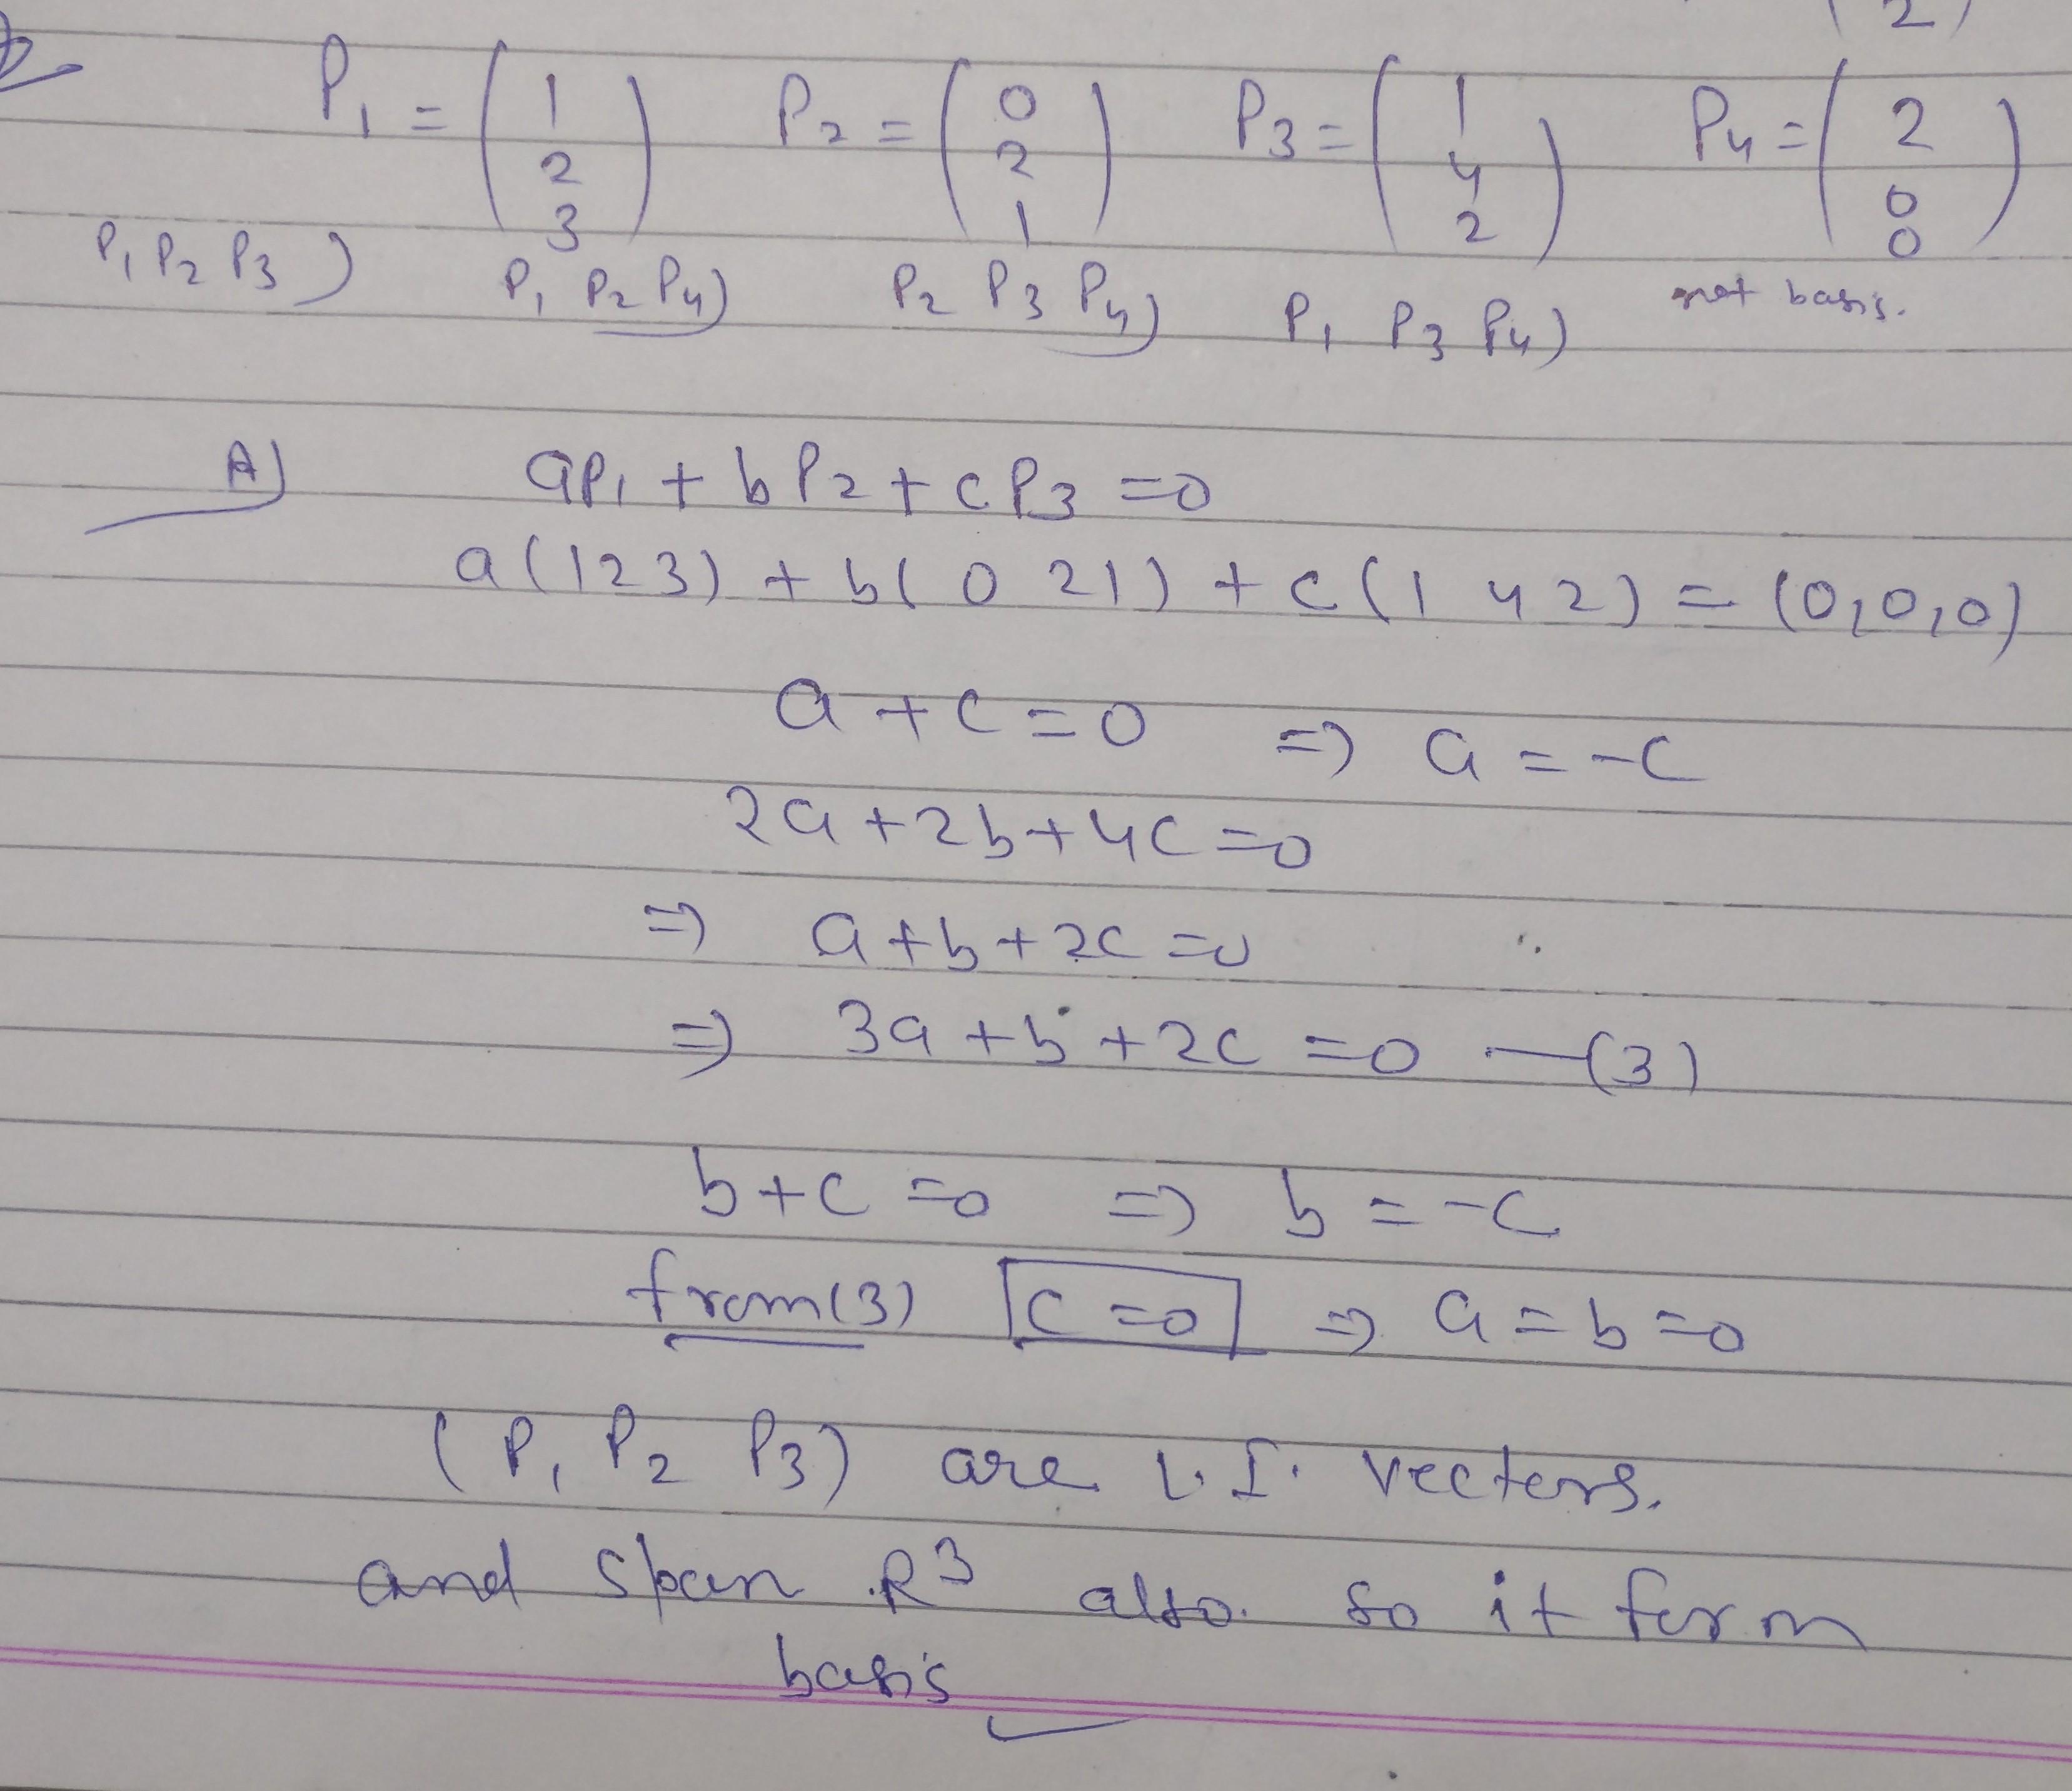 2)
P₁ = (1 2 3) P₂ = (0 2 1) P₃ = (1 4 2) P₄ = (2 0 0)
P₁ P₂ P₃) P₁ P₂ P₄) P₂ P₃ P₄) P₁ P₃ P₄) not basis.
A) aP₁ + bP₂ + cP₃ = 0
a(1 2 3) + b(0 2 1) + c(1 4 2) = (0,0,0)
a + c = 0 ⇒ a = -c
2a + 2b + 4c = 0
⇒ a + b + 2c = 0
⇒ 3a + b + 2c = 0 —(3)
b + c = 0 ⇒ b = -c
from(3) c = 0 ⇒ a = b = 0
(P₁ P₂ P₃) are L.I. vectors.
and span R³ also. So it form
basis